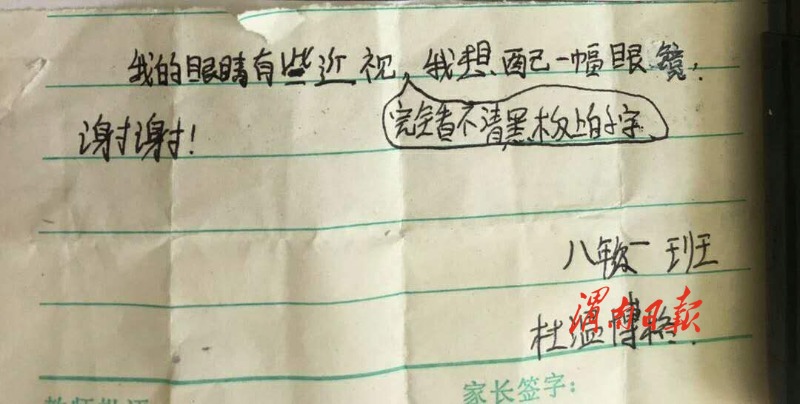 我的眼睛有些近视，我想配一幅眼镜，
完全看不清黑板上的字
谢谢！
八年级一班
渭南日报
杜温博
家长签字：